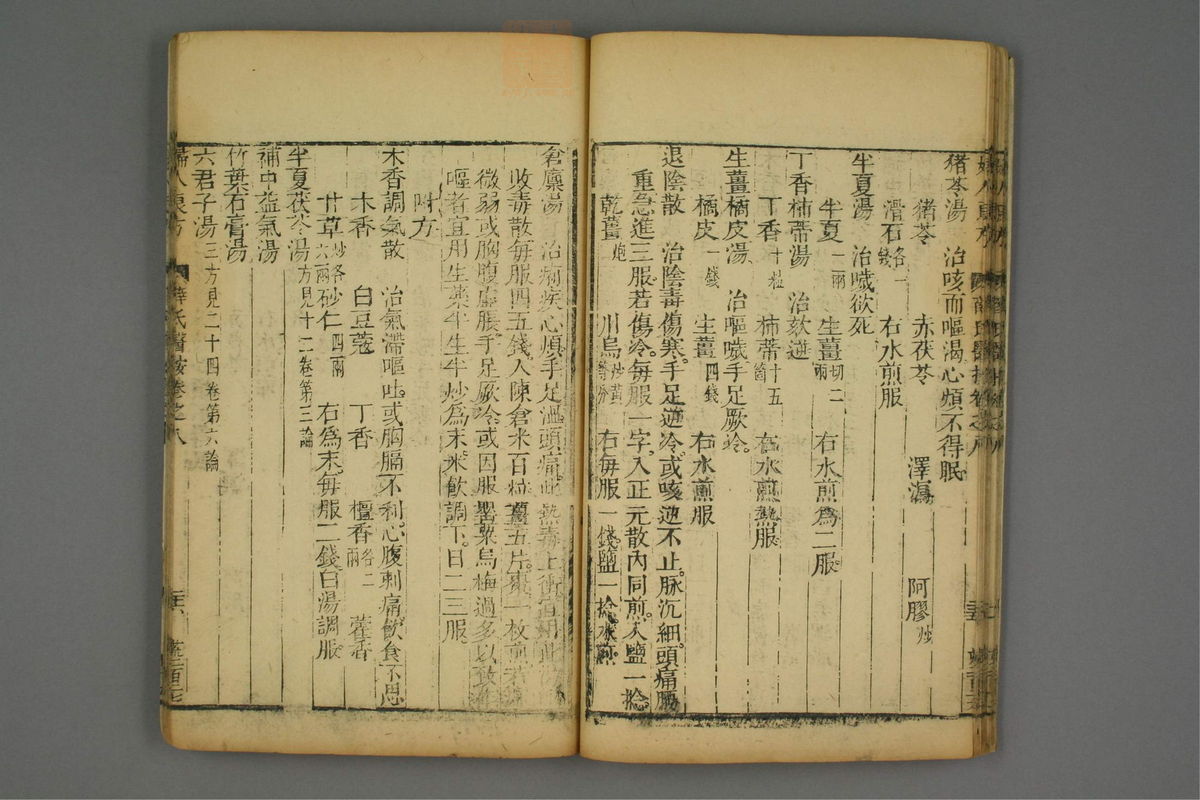 猪苓湯 治咳而嘔渴心煩不得眠
猪苓 赤茯苓 澤瀉 阿膠炒
滑石各一錢 右水煎服
半夏湯 治噦欲死
半夏一二兩 生薑切二兩 右水煎爲二服。
丁香柿蒂湯 治欬逆
丁香十粒 柿蒂十五箇 右水煎熱服
生薑橘皮湯 治嘔噦手足厥冷。
橘皮一錢 生薑四錢 右水煎服
退陰散 治陰毒傷寒。手足逆冷。或咳逆不止。脉沉細。頭痛腰
重。急進三服。若傷冷。每服一字。入正元散内同煎。入鹽一捻。
乾薑炮 川烏炒黃等分 右每服一錢。鹽一捻。水煎。
倉廩湯 治痢疾心煩。手足溫。頭痛。此熱毒上衝。宜用此湯
收毒散每服四五錢。入陳倉米百粒。薑五片。棗一枚煎。若
微弱。或胸腹虛脹。手足厥冷。或因服罌粟烏梅過多。以致
嘔者。宜用生藥半生半炒爲末。米飲調下。日二三服。
附方
木香調氣散 治氣滯嘔吐。或胸膈不利。心腹刺痛。飲食不思
木香 白豆蔻 丁香 檀香各二兩 藿香
甘草炒各六兩 砂仁四兩 右爲末。每服二錢。白湯調服。
半夏茯苓湯方見十二卷第三論
補中益氣湯
竹葉石膏湯
六君子湯三方見二十四卷第六論
婦人良方 薛氏醫按卷之八